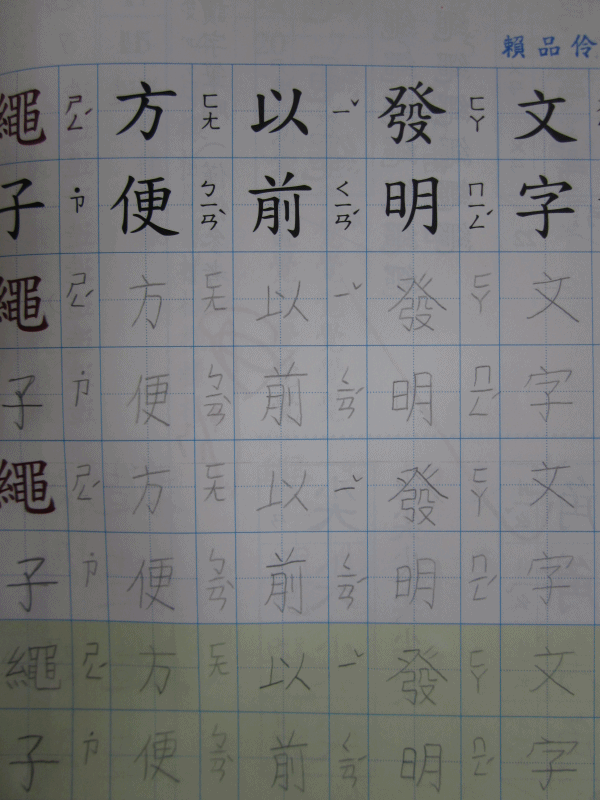 賴品伶
文字文字文字文字
發明發明發明發明
ㄈㄚ ㄇㄧㄥˊ ㄈㄚ ㄇㄧㄥˊ ㄈㄚ ㄇㄧㄥˊ ㄈㄚ ㄇㄧㄥˊ
以前以前以前以前
ㄧˇ ㄑㄧㄢˊ ㄧˇ ㄑㄧㄢˊ ㄧˇ ㄑㄧㄢˊ ㄧˇ ㄑㄧㄢˊ
方便方便方便方便
ㄈㄤ ㄅㄧㄢˋ ㄈㄤ ㄅㄧㄢˋ ㄈㄤ ㄅㄧㄢˋ ㄈㄤ ㄅㄧㄢˋ
繩子繩子繩子繩子
ㄕㄥˊ ˙ㄗ ㄕㄥˊ ˙ㄗ ㄕㄥˊ ˙ㄗ ㄕㄥˊ ˙ㄗ